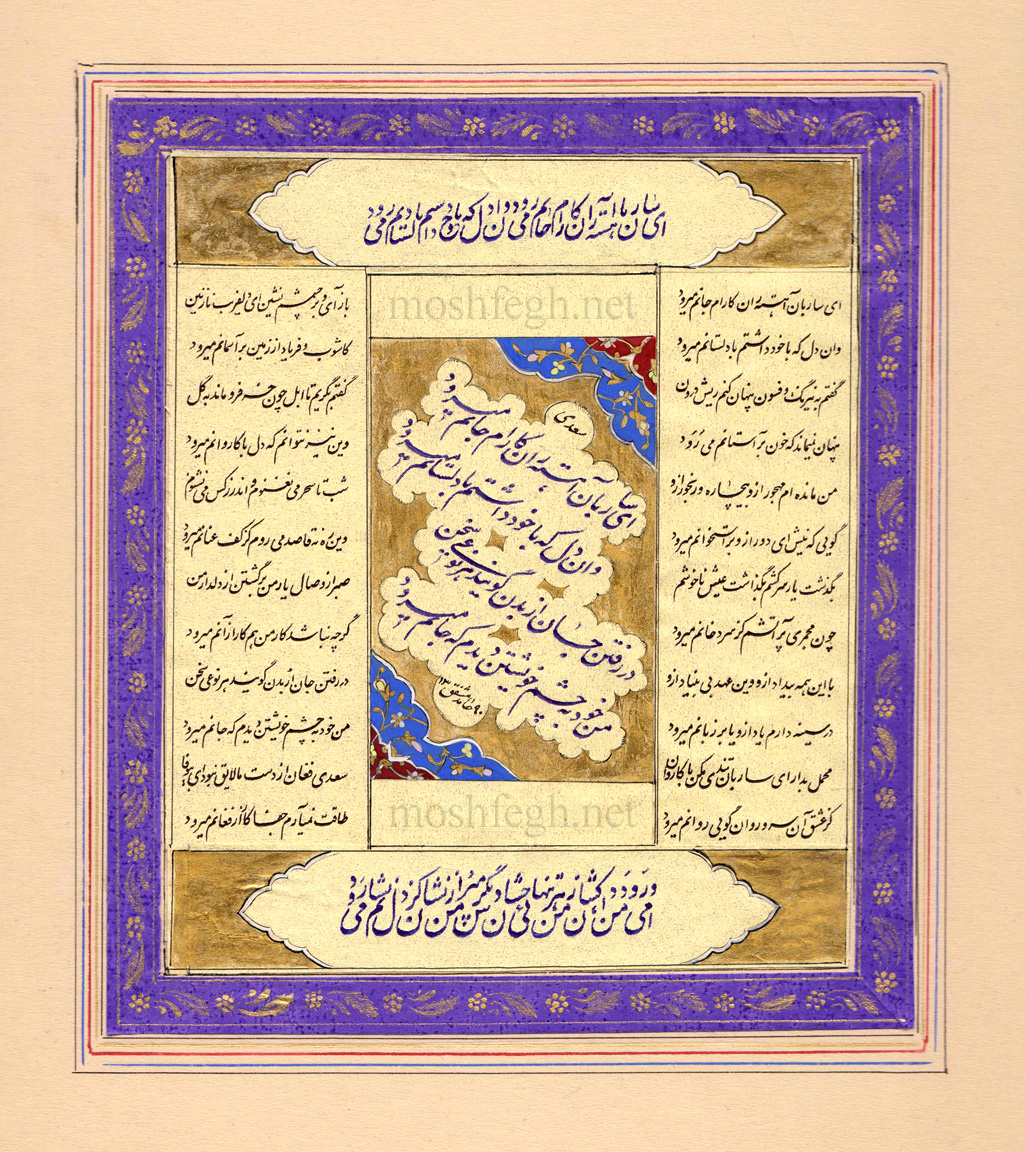 ای ساربان آهسته ران کارام جانم می رود وان دل که با خود داشتم با دلستانم می رود
ای ساربان آهسته ران کارام جانم میرود
وان دل که با خود داشتم با دلستانم میرود
گفتم به نیرنگ و فسون پنهان کنم ریش درون
پنهان نیماند که خون بر آستانم می رود
من مانده ام مهجور ازو بیچاره و رنجور ازو
گویی که نیش ای دور ازو بر استخوانم میرود
بگذشت یار سرکشم بگذاشت عیش ناخوشم
چون مجمری پر آتشم کز سر دخانم میرود
با این همه بیداد ازو وین عهد بی بنیاد ازو
در سینه دارم یاد ازو یا بر زبانم میرود
محمل بدار ای ساربان تندی مکن با کاروان
کز عشق آن سرو روان گویی روانم میرود
moshfegh.net
سعدی
ای ساربان آهسته ران کارام جانم میرود
وان دل که با خود داشتم با دلستانم میرود
در رفتن جان از بدن گویند هر نوعی سخن
من خود به چشم خویشتن دیدم که جانم میرود
moshfegh.net
باز آی و بر چشمم نشین ای دلفریب نازنین
کاشوب و فریاد از زمین بر آسمانم میرود
گفتم بگریم تا ابل چون خر فرو ماند به گل
وین نیز نتوانم که دل با کاروانم میرود
شب تا سحر می نغنوم و اندرز کس می نشنوم
وین ره نه قاصد می روم کز کف عنانم میرود
صبر از وصال یار من برگشتن از دلدار من
گرچه نباشد کار من هم کار از آنم میرود
در رفتن جان از بدن گویند هر نوعی سخن
من خود به چشم خویشتن دیدم که جانم میرود
سعدی فغان از دست ما لایق نبود ای بی وفا
طاقت نمیآرم جفا کار از فغانم میرود
او می رود دامن کشان من زهر تنهایی چشان دیگر مپرس از من نشان کز دل نشانم می رود